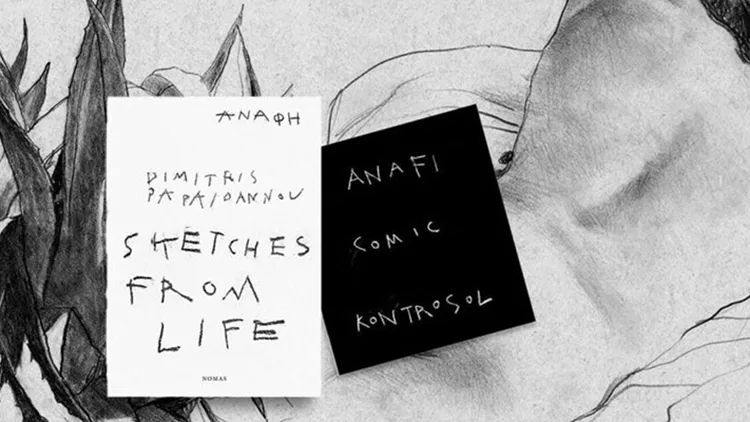 ΑΝΑΦΗ
DIMITRIS
PAPAIOANNOU
SKETCHES
FROM
LIFE
NOMAS
ANAFI
COMIC
KONTROSOL